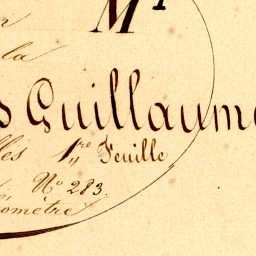 Mr
la
s Guillaume
lles 1re Feuille
No 283.
omètre